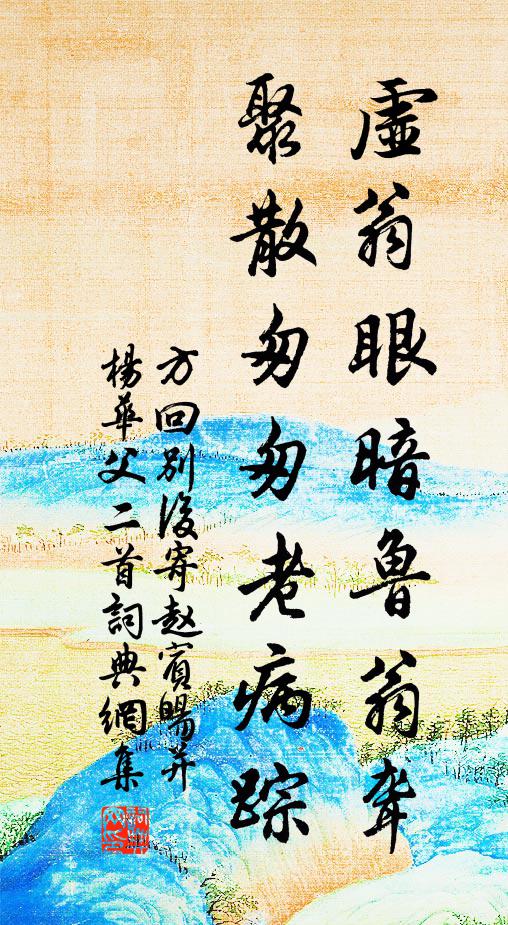 虛翁眼暗魯翁聋
聚散匆匆老病踪
方回别後寄趙賓暘并
楊華父二首詞典網集